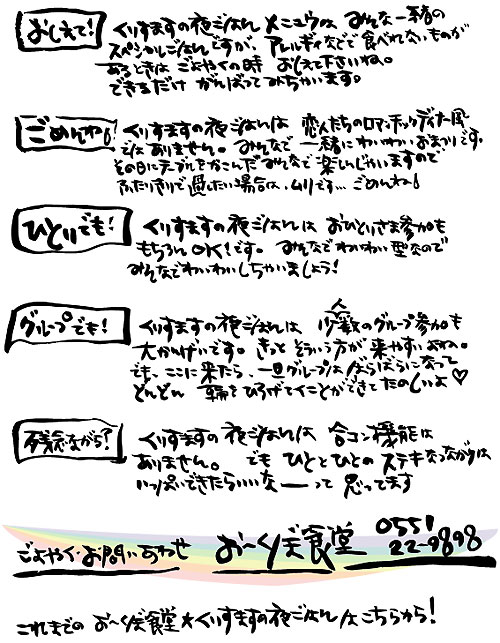 おしえて!
くりすますの夜ごはん メニュウは みんな一緒の
スペシャルごはんですが、アレルギィなどで食べれないものが
あるときは ごよやくの時 おしえて下さいね。
できるだけ がんばってみちゃいます。
ごめんね!
くりすますの夜ごはんは 恋人たちのロマンチックディナー風
ではありません。みんなで 一緒に わいわい おまつりです。
その日にテーブルをかこんだみんなで 楽しんじゃいますので
ふたりきりで過したい場合は、ムリです… ごめんね!
ひとりでも!
くりすますの夜ごはんは おひとりさま参加も
もちろんOK!です。みんなでわいわい型なので
みんなでわいわいしちゃいましょう!
グループでも!
くりすますの夜ごはんは 少人数のグループ参加も
大かんげいです。きっと そういう方が 来やすいよね。
でも、ここに来たら、一旦グループは ばらばらになって
どんどん 輪をひろげてくことができて たのしいよ♡
残念ながら?
くりすますの 夜ごはんは 合コン機能は
ありません。 でも ひととひとの ステキなつながりは
いっぱいできたらいいなーって 思ってます
ごよやく・お問いあわせ お〜くぼ食堂 0551 22-9898
これまでの お〜くぼ食堂★くりすますの夜ごはん はこちらから!